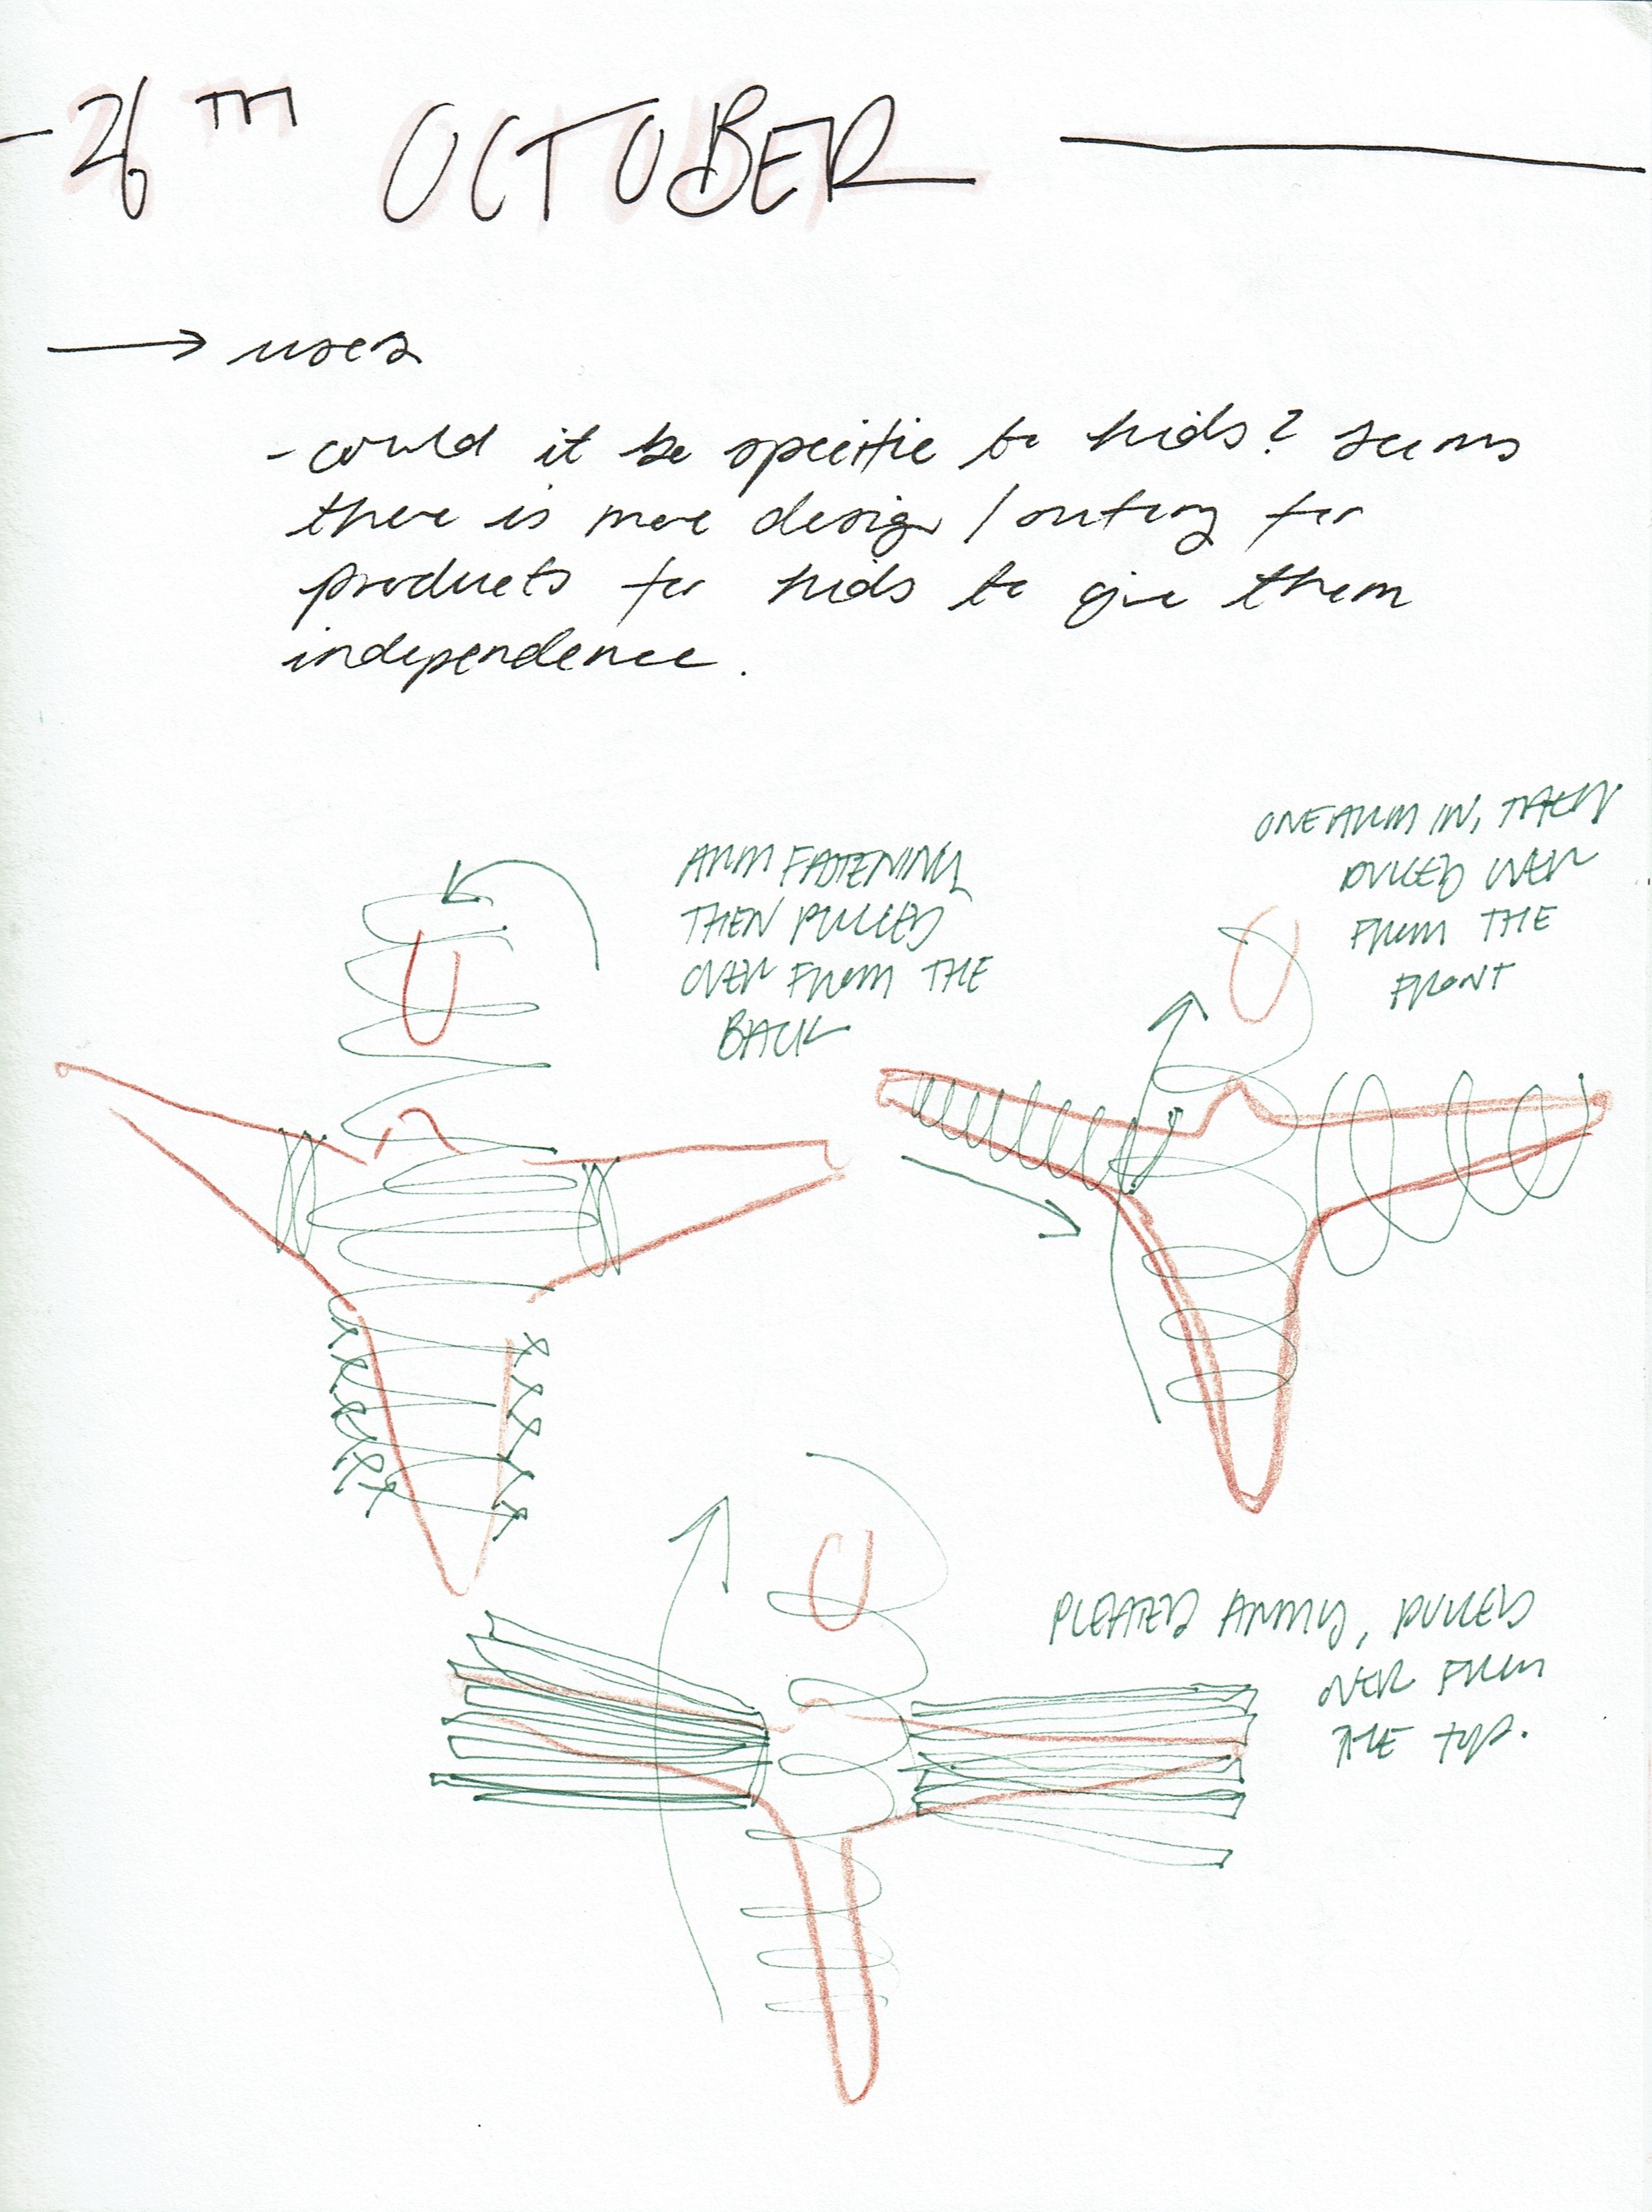 26TH OCTOBER
→ uses
- could it be specific to kids? seems
there is more design / outing for
products for kids to give them
independence.
ARM FASTENING
THEN PULLED
OVER FROM THE
BACK
ONE ARM IN, THEN
PULLED OVER
FROM THE
FRONT
PLEATED ARMS, PULLED
OVER FROM
THE TOP.